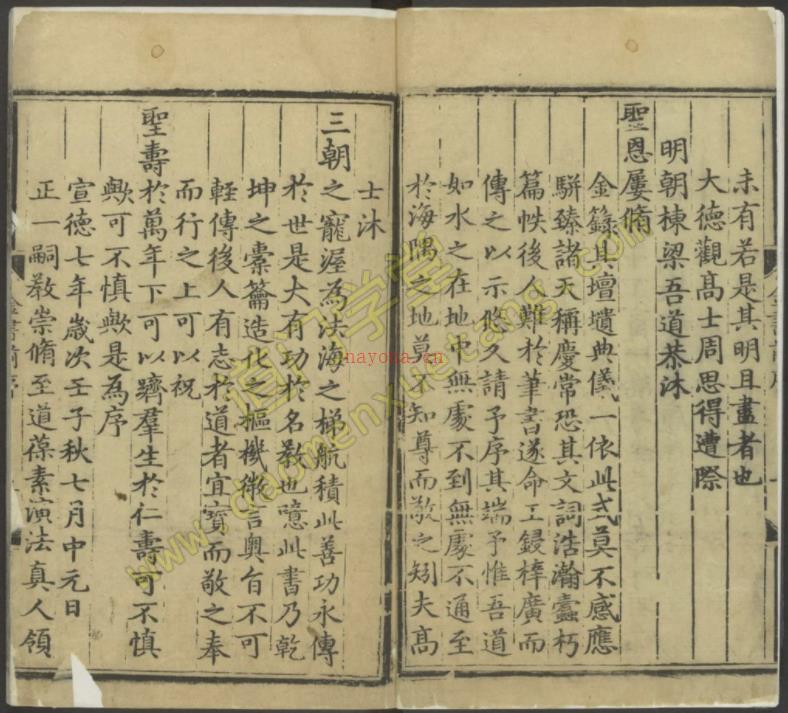 未有若是其明且盡者也
大德觀髙士周思得遭際
明朝棟梁吾道恭沐
聖恩屢脩
金籙其壇墠典儀一依此式莫不感應
駢臻諸天稱慶常恐其文詞浩瀚蠹朽
篇帙後人難於筆書遂命工鋟梓廣而
傳之以示悠久請予序其端予惟吾道
如水之在地中無處不到無處不通至
於海隅之地莫不知尊而敬之矧夫髙
士沐
三朝之寵渥為法海之梯航積此善功永傳
於世是大有功於名教也噫此書乃乾
坤之橐籥造化之樞機微言奥旨不可
輕傳後人有志於道者宜寳而敬之奉
而行之上可以祝
聖壽於萬年下可以躋羣生於仁壽可不慎
歟可不慎歟是為序
宣德七年嵗次壬子秋七月中元日
正一嗣教崇脩至道葆素演法真人領
道门学堂
www.daomenxuetang.com
nayona.cn